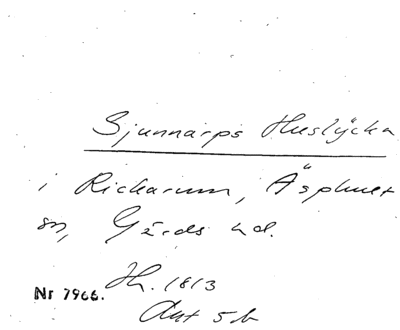 Sjunnarps Huslycka
i Rickarum, Äsphult
sn, Gärds hd.
Nr 7966. Jh. 1813
Akt 5b